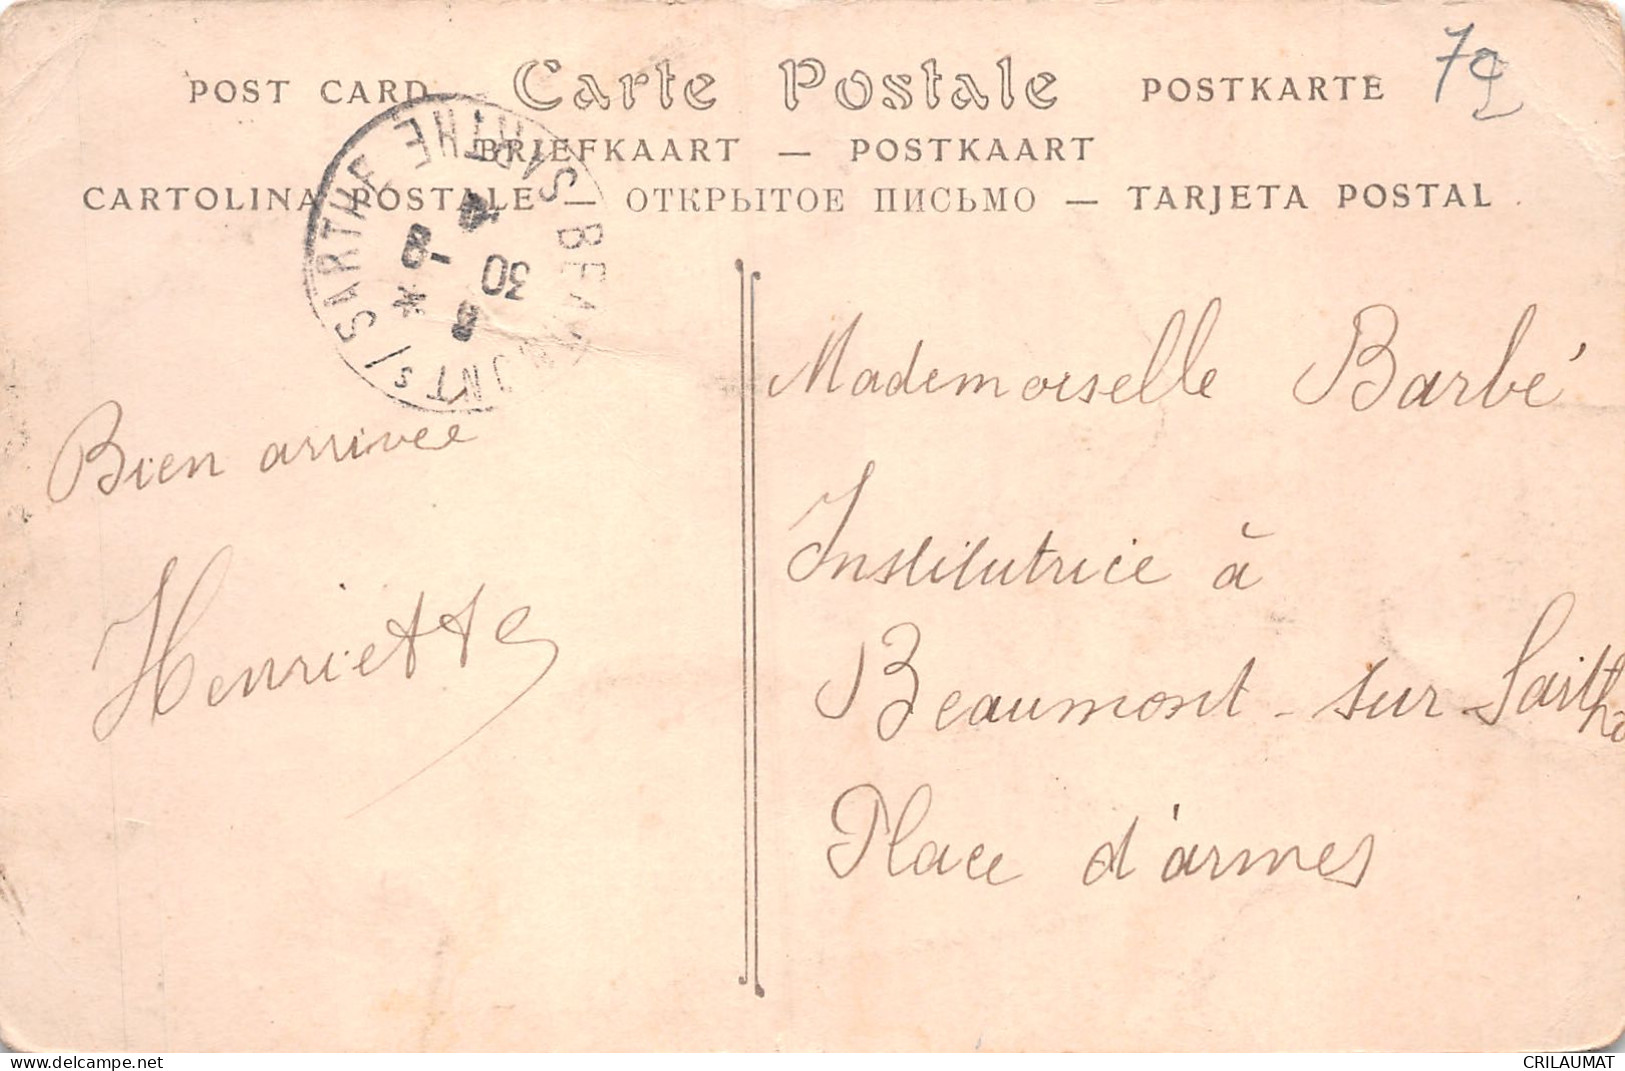 POST CARD Carte Postale POSTKARTE
BRIEFKAART — POSTKAART
CARTOLINA POSTALE — ОТКРЫТОЕ ПИСЬМО — TARJETA POSTAL
72
BEAUMONT s/ SARTHE SARTHE
8
30
8 -
*
Bien arrivée
Henriette
Mademoiselle Barbé
Institutrice à
Beaumont-sur-Sarthe
Place d'armes
www.delcampe.net
CRILAUMAT